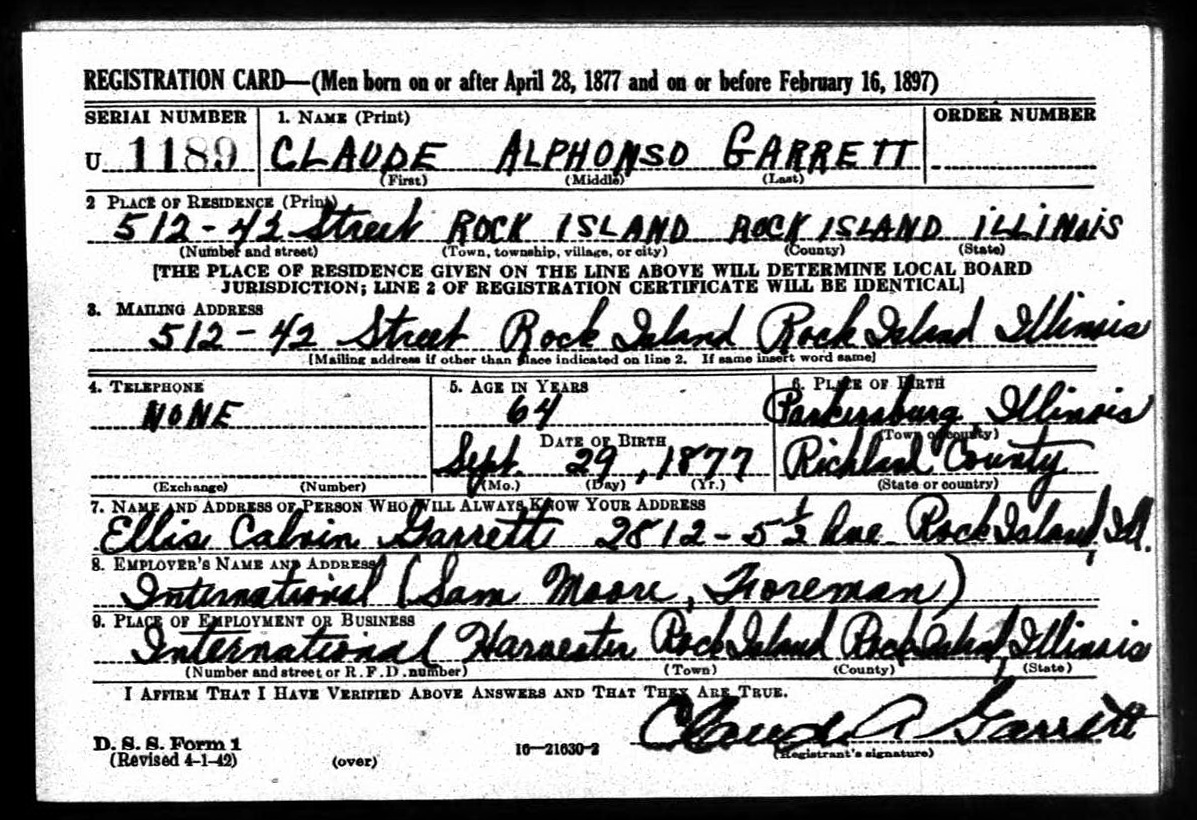 REGISTRATION CARD—(Men born on or after April 28, 1877 and on or before February 16, 1897)
SERIAL NUMBER 1. NAME (Print) ORDER NUMBER
U 1189 CLAUDE ALPHONSO GARRETT
(First) (Middle) (Last)
2 PLACE OF RESIDENCE (Print)
512-42 Street ROCK ISLAND ROCK ISLAND ILLINOIS
(Number and street) (Town, township, village, or city) (County) (State)
[THE PLACE OF RESIDENCE GIVEN ON THE LINE ABOVE WILL DETERMINE LOCAL BOARD
JURISDICTION; LINE 2 OF REGISTRATION CERTIFICATE WILL BE IDENTICAL]
3. MAILING ADDRESS
512-42 Street Rock Island Rock Island Illinois
[Mailing address if other than place indicated on line 2. If same insert word same]
4. TELEPHONE 5. AGE IN YEARS 6. PLACE OF BIRTH
NONE 64 Parkersburg, Illinois
DATE OF BIRTH (Town or county)
Sept. 29, 1877 Richland County
(Exchange) (Number) (Mo.) (Day) (Yr.) (State or country)
7. NAME AND ADDRESS OF PERSON WHO WILL ALWAYS KNOW YOUR ADDRESS
Ellis Calvin Garrett 2812-5½ Ave Rock Island, Ill.
8. EMPLOYER'S NAME AND ADDRESS
International (Sam Moore, Foreman)
9. PLACE OF EMPLOYMENT OR BUSINESS
International Harvester Rock Island Rock Island, Illinois
(Number and street or R. F. D. number) (Town) (County) (State)
I AFFIRM THAT I HAVE VERIFIED ABOVE ANSWERS AND THAT THEY ARE TRUE.
Claude A Garrett
D. S. S. Form 1 16—21630-2 (Registrant's signature)
(Revised 4-1-42) (over)